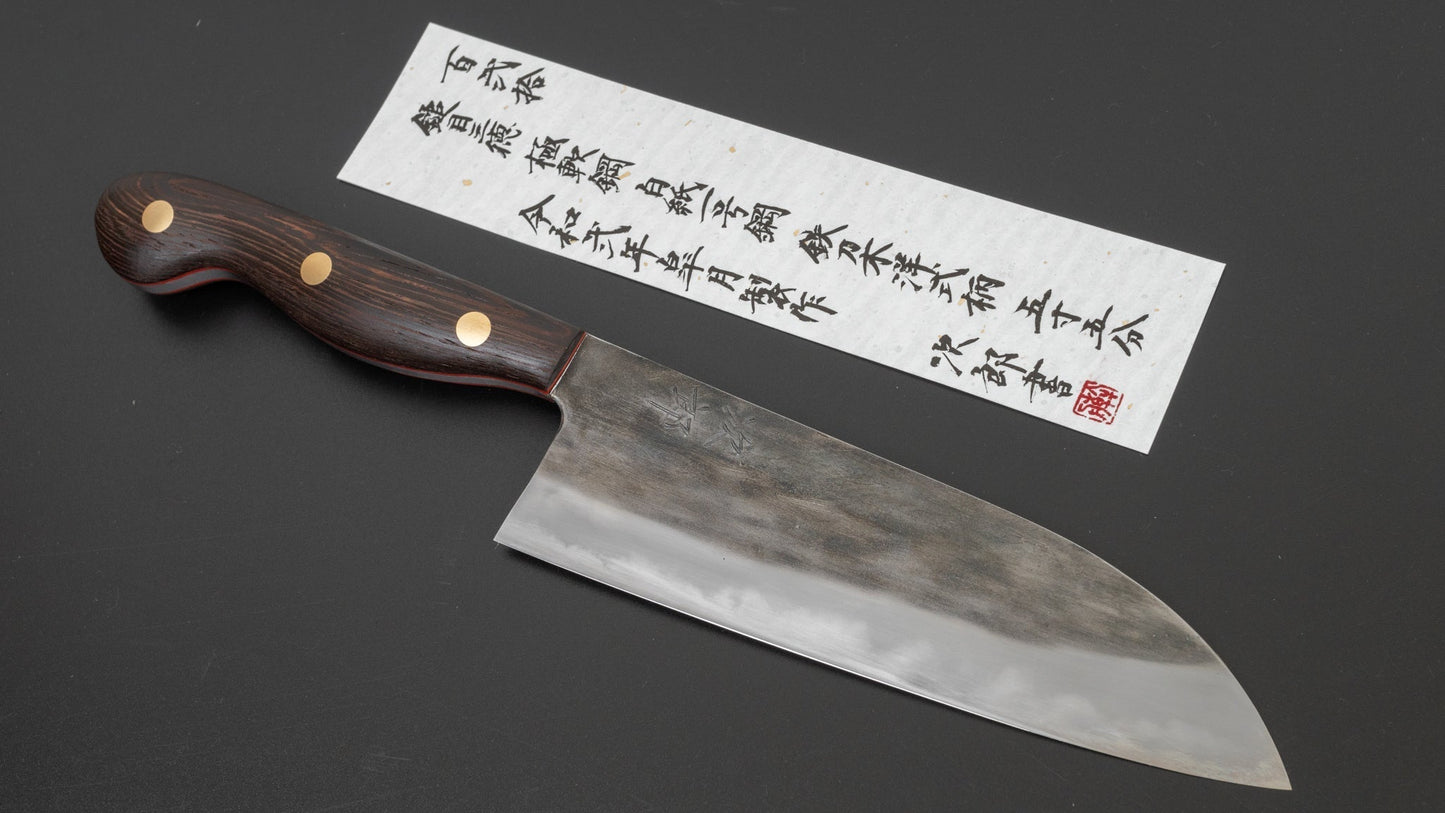 百弐拾
鎚目三徳 極軟鋼 白紙一号鋼 鉄刀木洋式柄 五寸五分
令和弐年皐月製作
次郎書